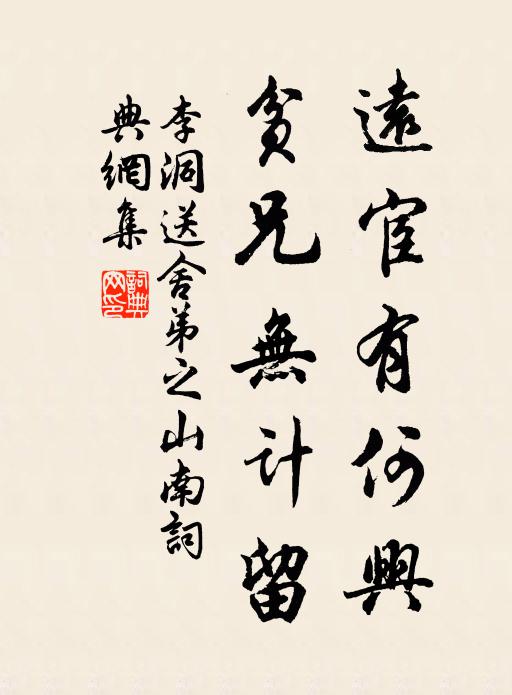 遠宦有何興
貧兄無計留
李洞送舍弟之山南詞
典網集
詞典
网印